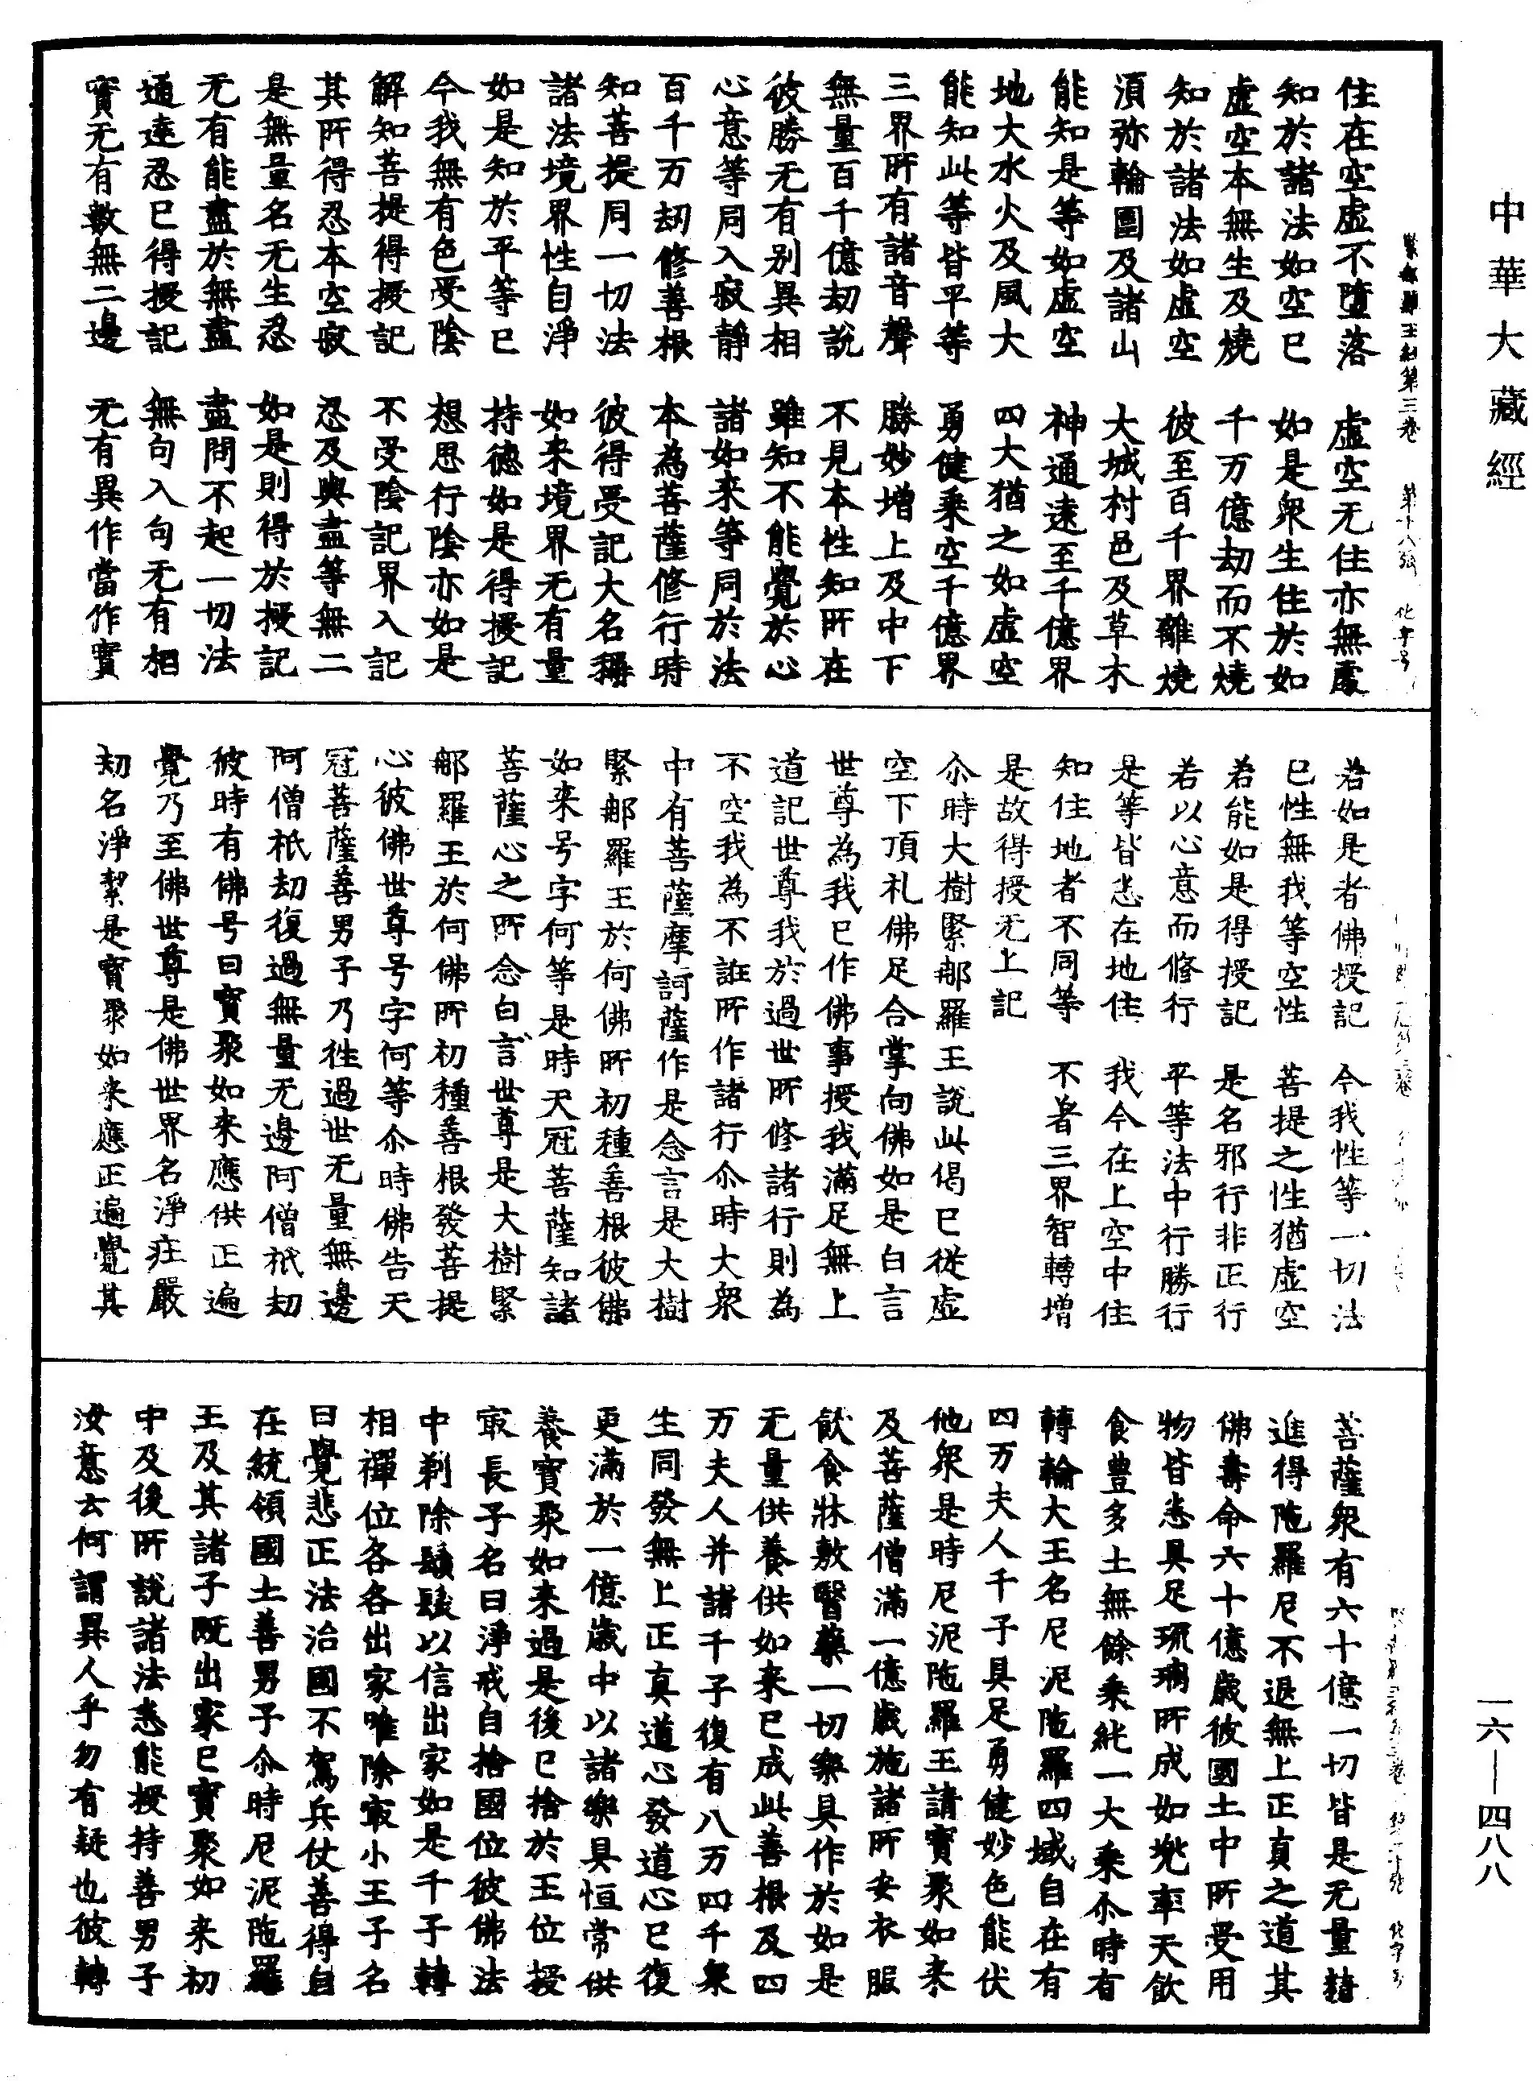 中華大藏經
緊那羅王經第三卷　第十八張　化字号
住在空虛不墮落　虛空无住亦無處
知於諸法如空已　如是眾生住於如
虛空本無生及燒　千万億劫而不燒
知於諸法如虛空　彼至百千界離燒
湏弥輪圍及諸山　大城村邑及草木
能知是等如虛空　神通遠至千億界
地大水火及風大　四大猶之如虛空
能知此等皆平等　勇健乘空千億界
三界所有諸音聲　勝妙增上及中下
無量百千億劫說　不見本性知所在
彼勝无有別異相　雖知不能覺於心
心意等同入寂靜　諸如来等同於法
百千万劫修善根　本為菩薩修行時
知菩提同一切法　彼得受記大名稱
諸法境界性自淨　如来境界无有量
如是知於平等已　持德如是得授記
今我無有色受陰　想思行陰亦如是
解知菩提得授記　不受陰記界入記
其所得忍本空寂　忍及與盡等無二
是無量名无生忍　如是則得於授記
无有能盡於無盡　盡問不起一切法
通達忍已得授記　無句入句无有相
實无有數無二邊　无有異作當作實
若如是者佛授記　今我性等一切法
已性無我等空性　菩提之性猶虛空
若能如是得授記　是名邪行非正行
若以心意而修行　平等法中行勝行
是等皆悉在地住　我今在上空中住
知住地者不同等　不著三界智轉增
是故得授无上記
尒時大樹緊那羅王說此偈已從虛
空下頂礼佛足合掌向佛如是白言
世尊為我已作佛事授我滿足無上
道記世尊我於過世所修諸行則為
不空我為不誑所作諸行尒時大眾
中有菩薩摩訶薩作是念言是大樹
緊那羅王於何佛所初種善根彼佛
如来号字何等是時天冠菩薩知諸
菩薩心之所念白言世尊是大樹緊
那羅王於何佛所初種善根發菩提
心彼佛世尊号字何等尒時佛告天
冠菩薩善男子乃往過世无量無邊
阿僧祇劫復過無量无邊阿僧祇劫
彼時有佛号曰寶聚如来應供正遍
覺乃至佛世尊是佛世界名淨莊嚴
劫名淨潔是寶聚如来應正遍覺其
菩薩眾有六十億一切皆是无量精
進得陁羅尼不退無上正真之道其
佛壽命六十億歲彼國土中所受用
物皆悉具足琉璃所成如兜率天飲
食豊多土無餘乘純一大乘尒時有
轉輪大王名尼泥陁羅四域自在有
四万夫人千子具足勇健妙色能伏
他眾是時尼泥陁羅王請寶聚如来
及菩薩僧滿一億歲施諸所安衣服
飲食牀敷醫藥一切樂具作於如是
无量供養供如来已成此善根及四
万夫人并諸千子復有八万四千眾
生同發無上正真道心發道心已復
更滿於一億歲中以諸樂具恒常供
養寶聚如来過是後已捨於王位授
㝡長子名曰淨戒自捨國位彼佛法
中剃除鬚髮以信出家如是千子轉
相禪位各各出家唯除㝡小王子名
曰覺悲正法治國不駕兵仗善得自
在統領國土善男子尒時尼泥陁羅
王及其諸子既出家已寶聚如来初
中及後所說諸法悉能授持善男子
汝意云何謂異人乎勿有疑也彼轉
一六—四八八